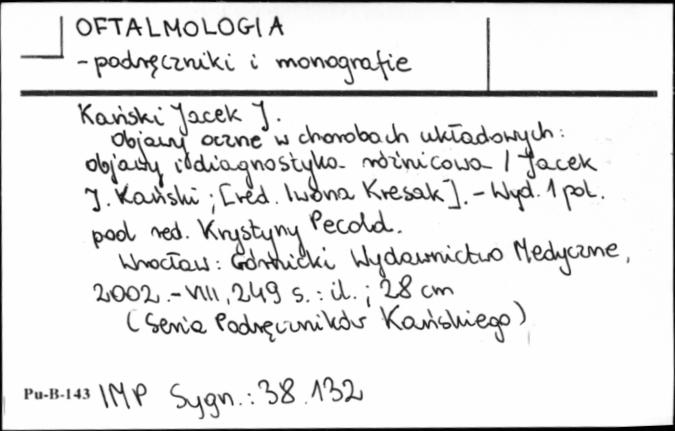 OFTALMOLOGIA
- podręczniki i monografie
Kański Jacek J.
Objawy oczne w chorobach układowych:
objawy i diagnostyka różnicowa / Jacek
J. Kański ; [red. Iwona Kresak]. - Wyd. 1 pol.
pod red. Krystyny Pecold.
Wrocław : Górnicki Wydawnictwo Medyczne,
2002. - VIII, 249 s. : il. ; 28 cm
(Seria Podręczników Kańskiego)
Pu-B-143 IMP Sygn.: 38.132